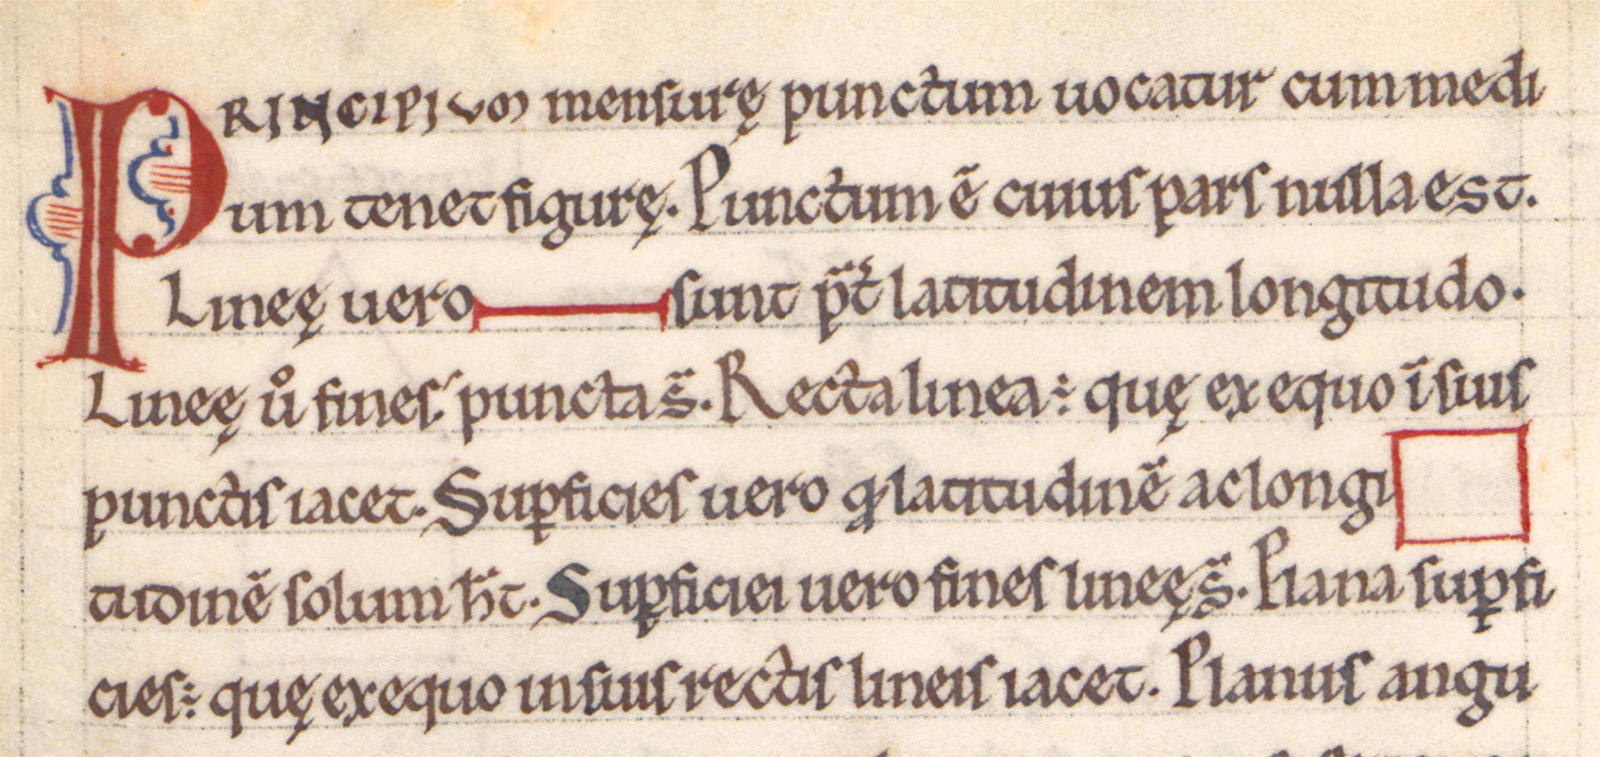 PRINCIPIUM mensurę punctum uocatur cum medi
um tenet figurę. Punctum ē cuius pars nulla est.
Lineę uero sunt p̄t latitudinem longitudo.
Lineę uͦ fines puncta s̄. Recta linea: quę ex equo ī suis
punctis iacet. Suꝑficies uero ꝙ latitudinē ac longi
tudinē solum h̄t. Suꝑficiei uero fines lineę s̄. Plana suꝑfi
cies: quę ex equo in suis rectis lineis iacet. Planus angu